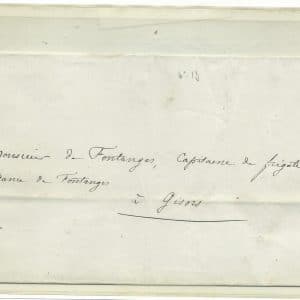 n° 13
onsieur de Fontanges, Capitaine de frégate
dame de Fontanges
à Gisors